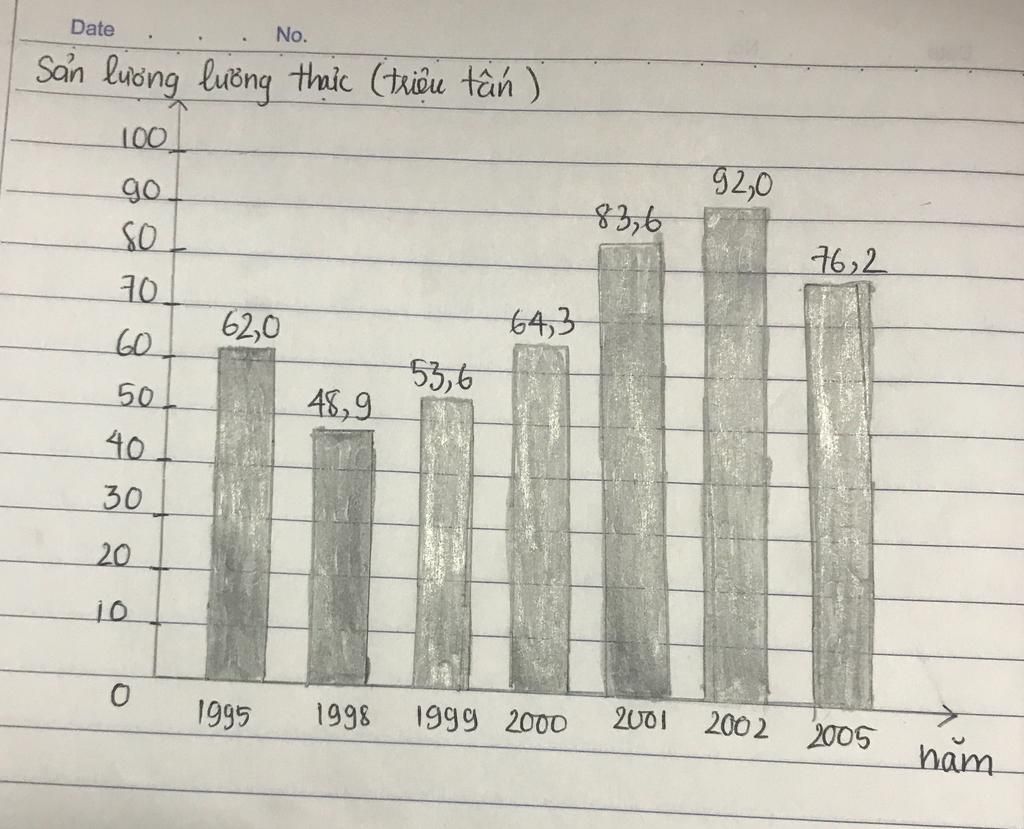 Date . . . No.
Sản lương lương thực (triệu tấn)
100
90
80
70
60
50
40
30
20
10
0
62,0
48,9
53,6
64,3
83,6
92,0
76,2
1995 1998 1999 2000 2001 2002 2005
năm